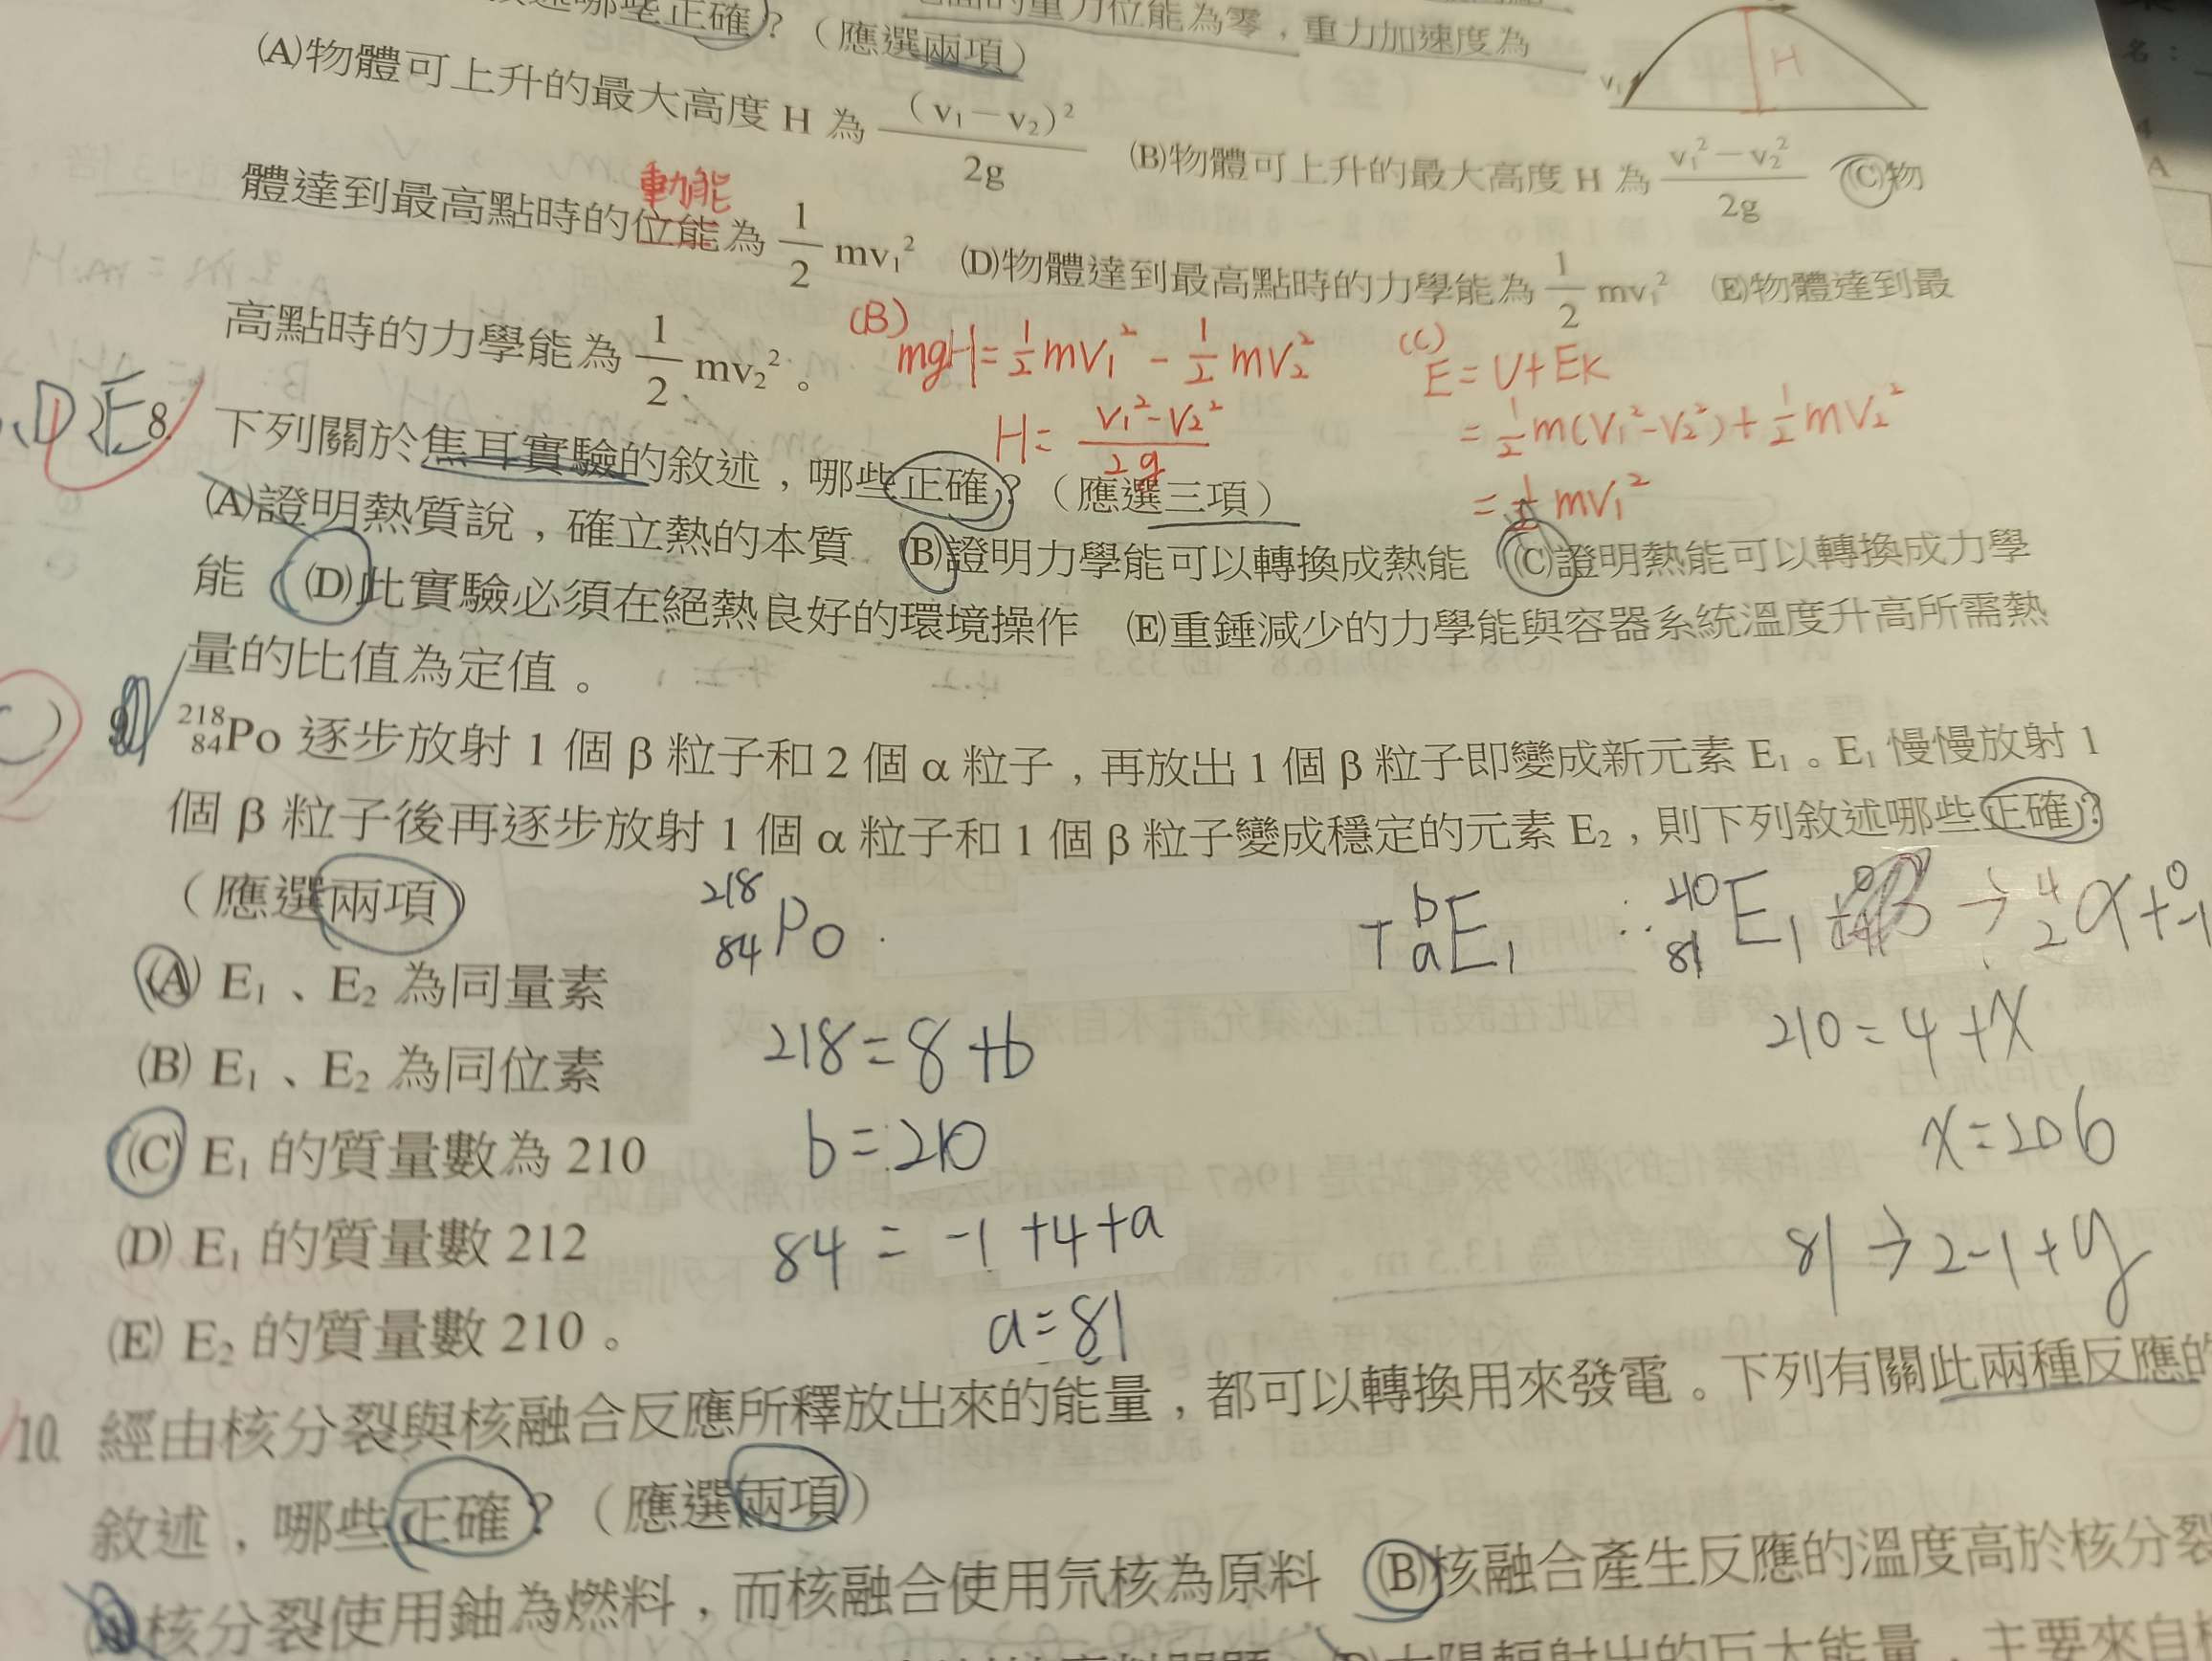 述哪些正確?(應選兩項)
的重力位能為零,重力加速度為
(A)物體可上升的最大高度 H 為 (v₁-v₂)²/2g (B)物體可上升的最大高度 H 為 v₁²-v₂²/2g (C)物
H
v₁
動能
體達到最高點時的位能為 1/2 mv₁² (D)物體達到最高點時的力學能為 1/2 mv₁² (E)物體達到最
高點時的力學能為 1/2 mv₂²。
(B) mgH=1/2mv₁²-1/2mv₂²
H=v₁²-v₂²/2g
(C) E=U+Ek
=1/2m(v₁²-v₂²)+1/2mv₂²
=1/2mv₁²
D E
8. 下列關於焦耳實驗的敘述,哪些正確?(應選三項)
(A)證明熱質說,確立熱的本質 (B)證明力學能可以轉換成熱能 (C)證明熱能可以轉換成力學
能 (D)此實驗必須在絕熱良好的環境操作 (E)重錘減少的力學能與容器系統溫度升高所需熱
量的比值為定值。
9. ²¹⁸₈₄Po 逐步放射 1 個 β 粒子和 2 個 α 粒子,再放出 1 個 β 粒子即變成新元素 E₁。E₁ 慢慢放射 1
個 β 粒子後再逐步放射 1 個 α 粒子和 1 個 β 粒子變成穩定的元素 E₂,則下列敘述哪些正確?
(應選兩項)
²¹⁸₈₄Po
+ᵇₐE₁
∴ ²¹⁰₈₁E₁ → ⁴₂α+⁰₋₁
(A) E₁、E₂ 為同量素
218=8+b
210=4+x
(B) E₁、E₂ 為同位素
b=210
x=206
(C) E₁ 的質量數為 210
84=-1+4+a
81→2-1+y
(D) E₁ 的質量數 212
a=81
(E) E₂ 的質量數 210。
10. 經由核分裂與核融合反應所釋放出來的能量,都可以轉換用來發電。下列有關此兩種反應的
敘述,哪些正確?(應選兩項)
核分裂使用鈾為燃料,而核融合使用氘核為原料 (B)核融合產生反應的溫度高於核分裂
太陽輻射出的巨大能量,主要來自